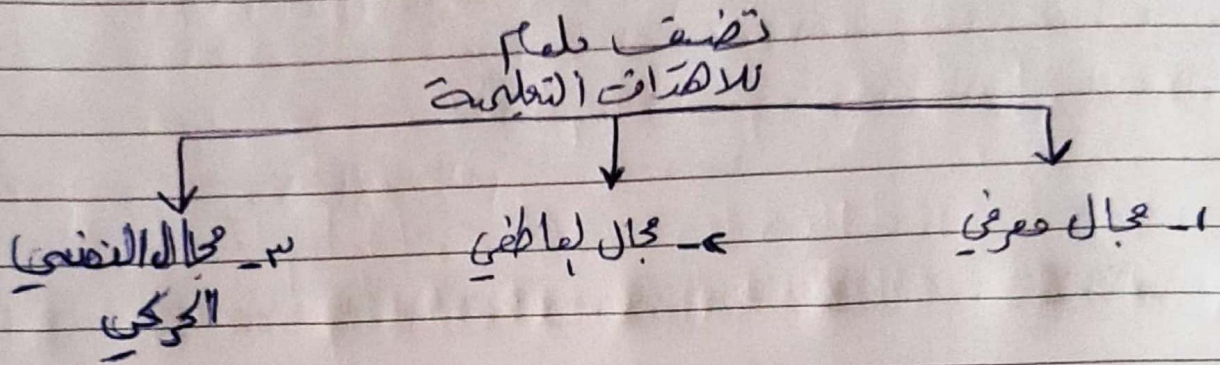 تضيف بلوم
للاهداف التعليمية
١- مجال معرفي
٢- مجال لعاطفي
٣- مجال النفسي
الحركي